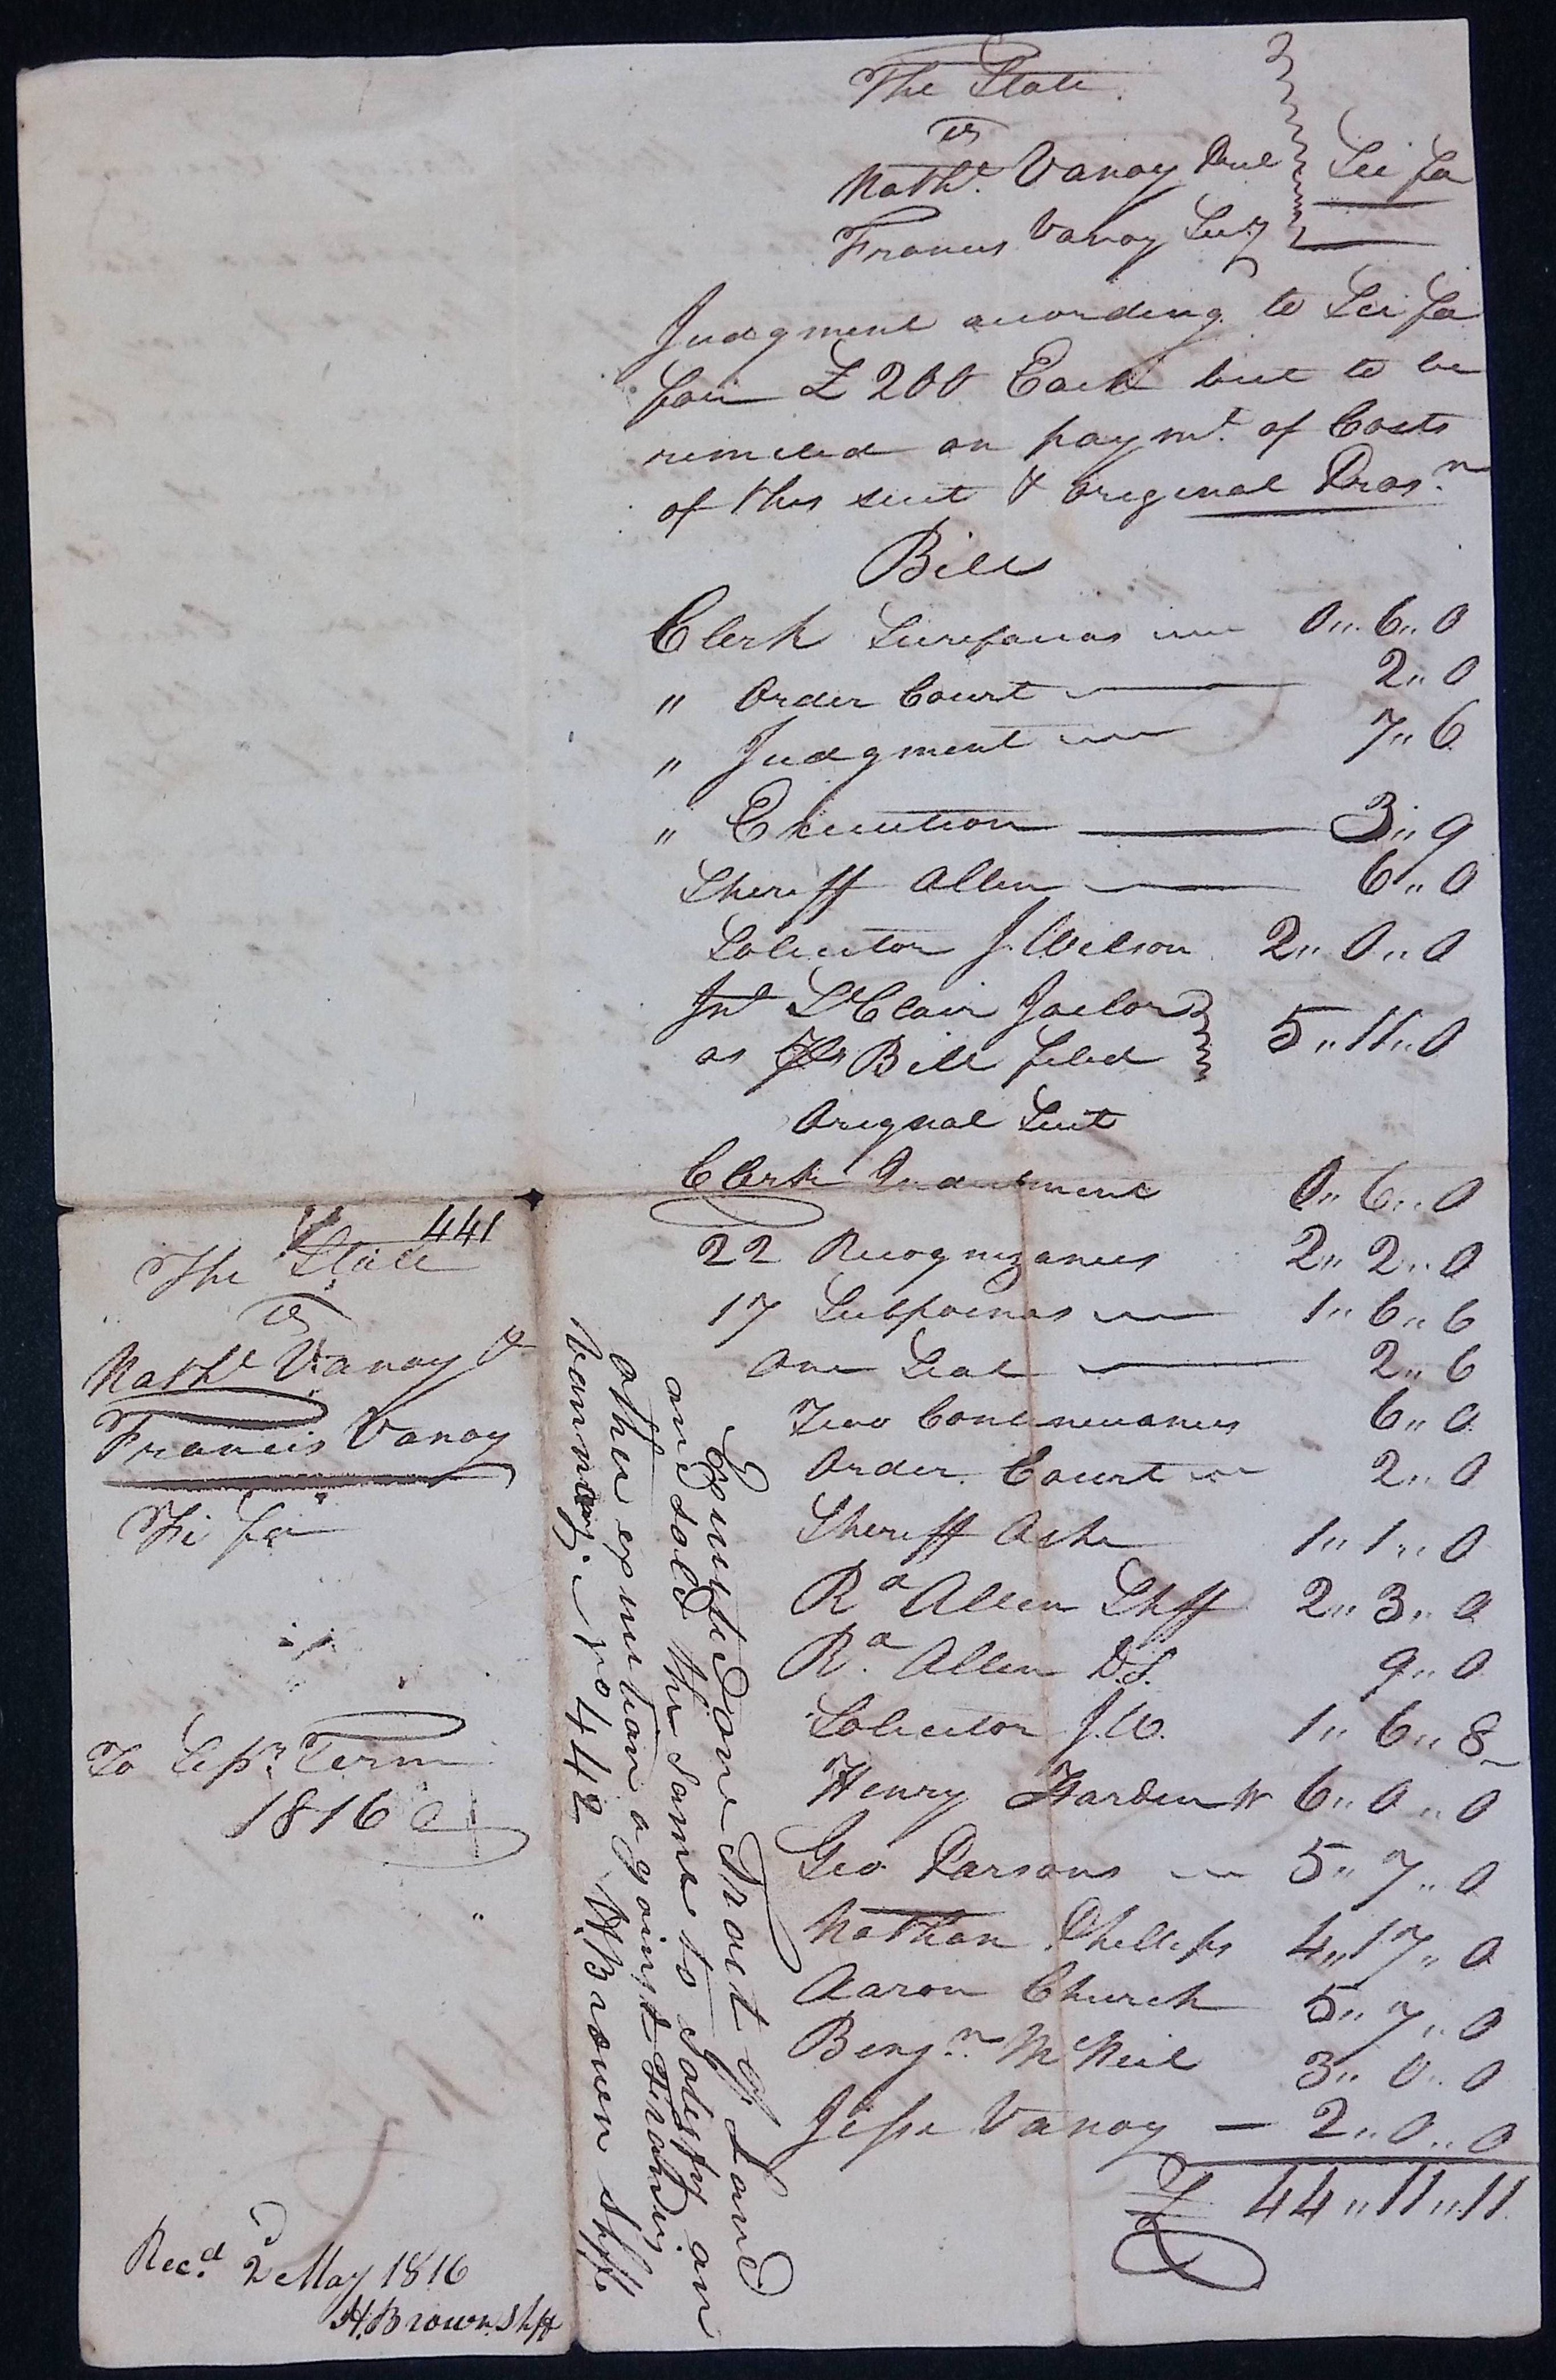 The State
vs
Nathl. Vanoy Prnl } Sci fa
Francis Vanoy Secy }
Judgment according to Sci fa
for £ 200 Each but to be
remited on paymt. of Costs
of this suit & original Prosn.
Bill
Clerk Scirefacias 0,, 6,, 0
" Order Court 2,, 0
" Judgment 7,, 6
" Execution 3,, 9
Sheriff Allen 6,, 0
Solicitor J. Wilson 2,, 0,, 0
Jno St Clair Jaelor
as Bill filed } 5,, 11,, 0
Orignal Suit
Clerk Indictment 0,, 6,, 0
22 Recognizances 2,, 2,, 0
17 Subpoenas 1,, 6,, 6
One Seal 2,, 6
Two Continuances 6,, 0
Order Court 2,, 0
Sheriff Ashe 1,, 1,, 0
Ra Allen Shff 2,, 3,, 0
Ra. Allen D.S. 9,, 0
Solicitor J.W. 1,, 6,, 8
Henry Harden 6,, 0,, 0
Geo Parsons 5,, 7,, 0
Nathan Phillips 4,, 17,, 0
Aaron Church 5,, 7,, 0
Benjn. McNeil 3,, 0,, 0
Jesse Vanoy — 2,, 0,, 0
£ 44,, 11,, 11
441
The State
vs
Nathl Vanoy &
Francis Vanoy
Fi fa
To Sepr. Term
1816
Recd. 2 May 1816
H. Brown Shff
Executed one Tract of Land
and sold the same to satesfy an
other exicution against Francis
Vannoy. No 442 H Brown Shff.